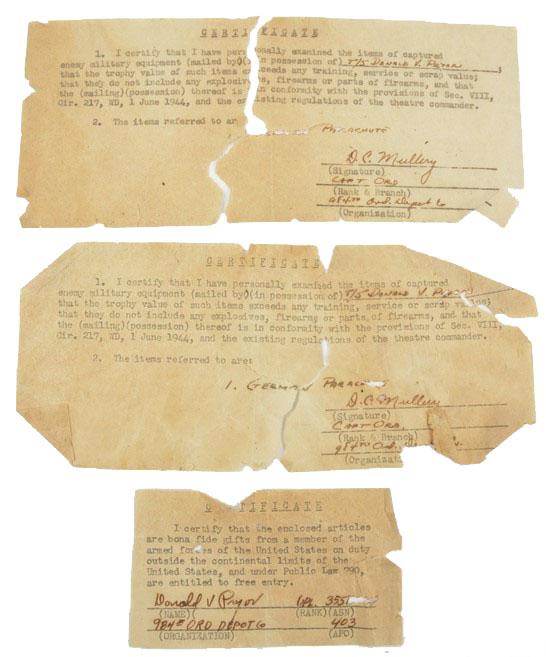 CERTIFICATE
1. I certify that I have personally examined the items of captured
enemy military equipment (mailed by)(in possession of) T/5 Donald V. Pryor;
that the trophy value of such items exceeds any training, service or scrap value;
that they do not include any explosives, firearms or parts of firearms, and that
the (mailing)(possession) thereof is in conformity with the provisions of Sec. VIII,
Cir. 217, WD, 1 June 1944, and the existing regulations of the theatre commander.
2. The items referred to ar
Parachute
D.C. Mullery
(Signature)
Capt Ord
(Rank & Branch)
984th Ord. Depot Co
(Organization)
CERTIFICATE
1. I certify that I have personally examined the items of captured
enemy military equipment (mailed by)(in possession of) T/5 Donald V. Pryor
that the trophy value of such items exceeds any training, service or scrap value;
that they do not include any explosives, firearms or parts of firearms, and that
the (mailing)(possession) thereof is in conformity with the provisions of Sec. VIII,
Cir. 217, WD, 1 June 1944, and the existing regulations of the theatre commander.
2. The items referred to are:
1. German Parac
D.C. Mullery
(Signature)
Capt Ord.
(Rank & Branch)
984th Ord.
(Organizat
CERTIFICATE
I certify that the enclosed articles
are bona fide gifts from a member of the
armed forces of the United States on duty
outside the continental limits of the
United States, and under Public Law 790,
are entitled to free entry.
Donald V Pryor Cpl. 355
(NAME) (RANK)(ASN)
984th ORD DEPOT Co 403
(ORGANIZATION) (APO)